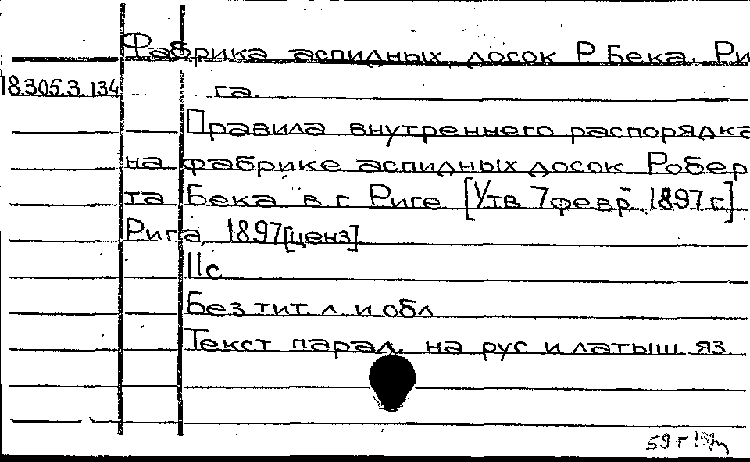 Фабрика аспидных досок Р Бека. Ри
18.305.3.134 га.
Правила внутреннего распорядка
на фабрике аспидных досок Робер
та Бека в г Риге [Утв 7 февр. 1897 г.]
Рига, 1897 [ценз].
11с
Без тит. л. и обл
Текст парал. на рус и латыш. яз
59 г